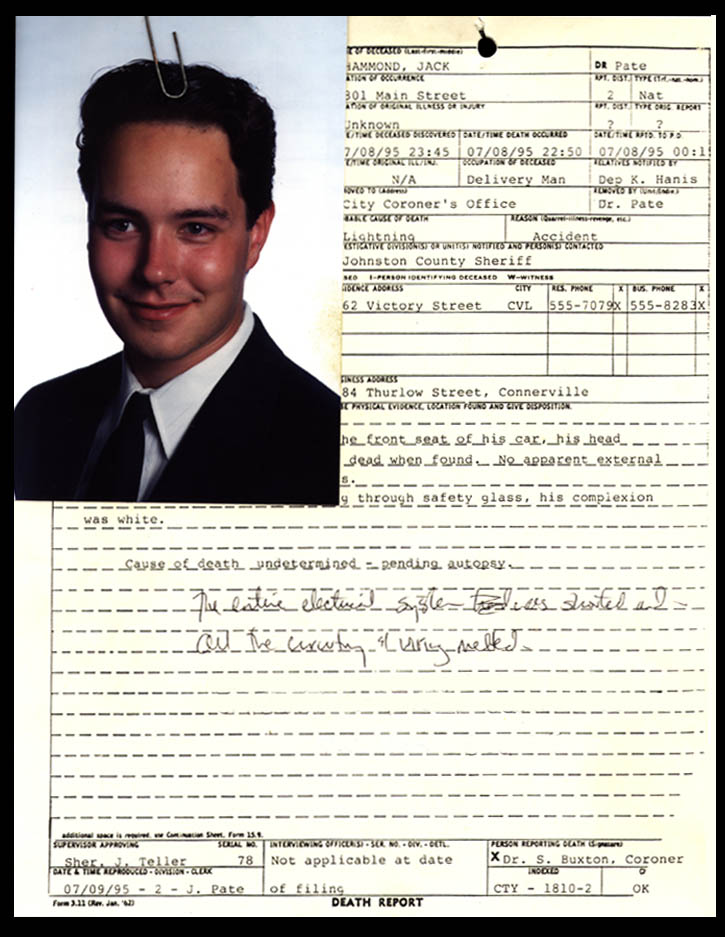 E OF DECEASED (Last-first-middle)
HAMMOND, JACK DR Pate
ATION OF OCCURRENCE RPT. DIST. TYPE (Trf.-nat.-hom.)
301 Main Street 2 Nat
ATION OF ORIGINAL ILLNESS OR INJURY RPT. DIST. TYPE ORIG. REPORT
Unknown ? ?
E/TIME DECEASED DISCOVERED DATE/TIME DEATH OCCURRED DATE/TIME RPTD. TO P.D.
7/08/95 23:45 07/08/95 22:50 07/08/95 00:1
E/TIME ORIGINAL ILL/INJ. OCCUPATION OF DECEASED RELATIVES NOTIFIED BY
N/A Delivery Man Dep K. Hanis
OVED TO (Address) REMOVED BY
City Coroner's Office Dr. Pate
BABLE CAUSE OF DEATH REASON (Quarrel-illness-revenge, etc.)
Lightning Accident
ESTIGATIVE DIVISION(S) OR UNIT(S) NOTIFIED AND PERSON(S) CONTACTED
Johnston County Sheriff
SED I-PERSON IDENTIFYING DECEASED W-WITNESS
IDENCE ADDRESS CITY RES. PHONE X BUS. PHONE X
62 Victory Street CVL 555-7079X 555-8283X
SINESS ADDRESS
84 Thurlow Street, Connerville
BE PHYSICAL EVIDENCE, LOCATION FOUND AND GIVE DISPOSITION.
he front seat of his car, his head
dead when found. No apparent external
s.
g through safety glass, his complexion
was white.
Cause of death undetermined - pending autopsy.
The entire electrical system was shorted and
all the circuitry & wiring melted.
additional space is required, use Continuation Sheet, Form 15.9.
SUPERVISOR APPROVING SERIAL NO. INTERVIEWING OFFICER(S) - SER. NO. - DIV. - DETL. PERSON REPORTING DEATH (Signature)
Sher. J. Teller 78 Not applicable at date X Dr. S. Buxton, Coroner
DATE & TIME REPRODUCED - DIVISION - CLERK INDEXED
07/09/95 - 2 - J. Pate of filing CTY - 1810-2 OK
Form 3.11 (Rev. Jan. '62) DEATH REPORT